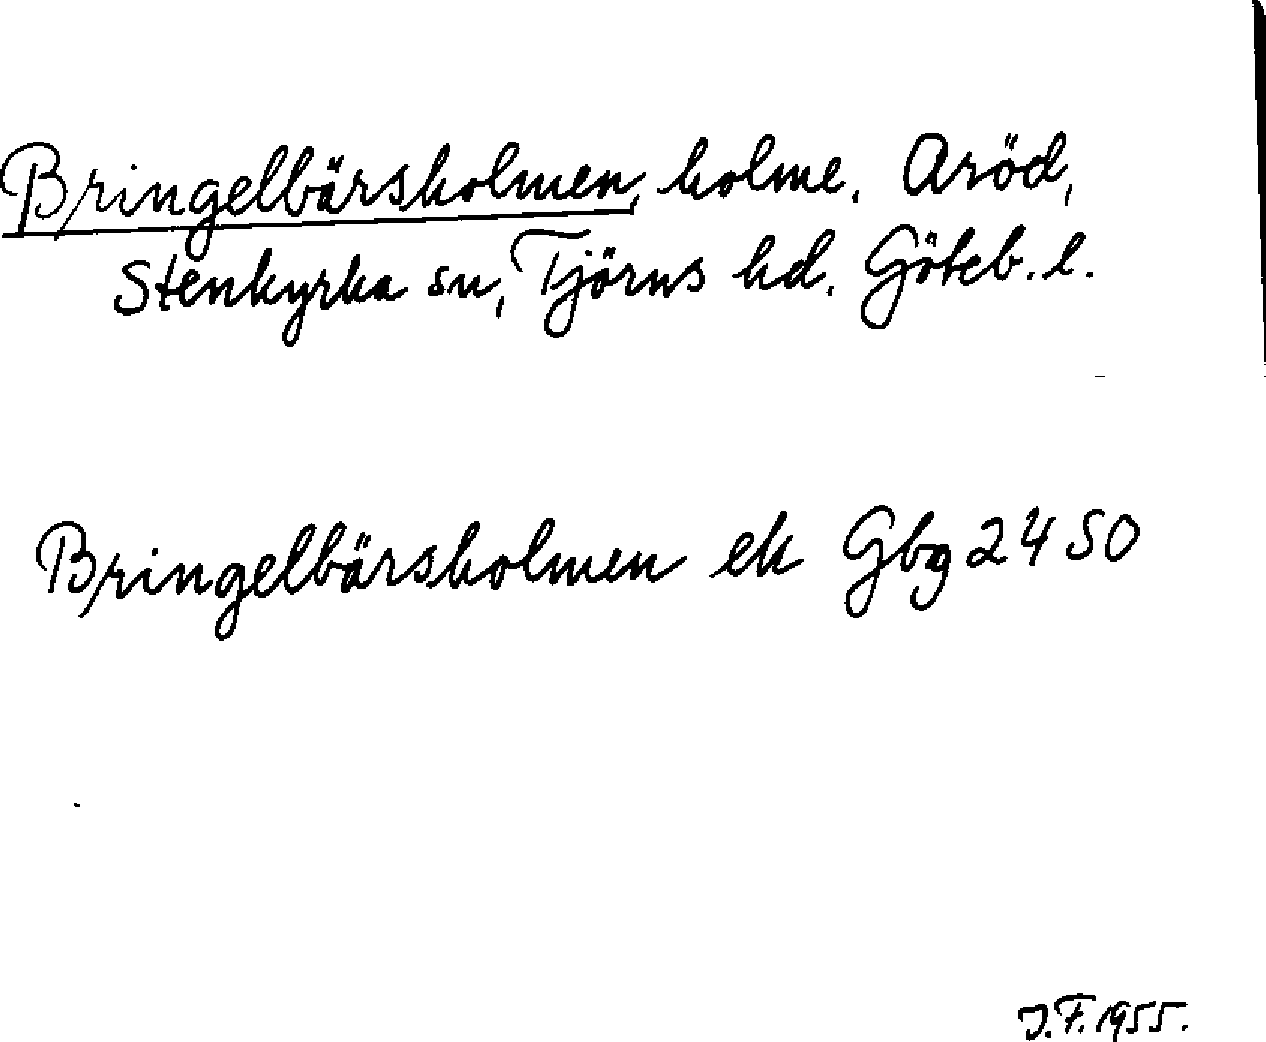 Bringelbärsholmen, holme. Aröd,
Stenkyrka sn, Tjörns hd. Göteb. l.
Bringelbärsholmen ek Gbg 2450
J.F. 1955.